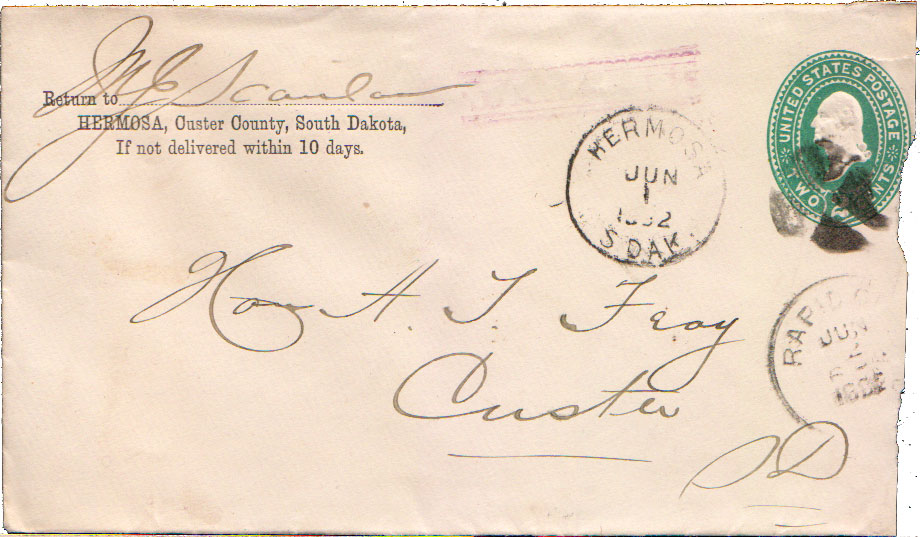 Return to J M Scanlan
HERMOSA, Custer County, South Dakota,
If not delivered within 10 days.
HERMOSA
JUN
1
S DAK.
UNITED STATES POSTAGE
TWO CENTS
RAPID
JUN
Hon A. T. Feay
Custer
S D